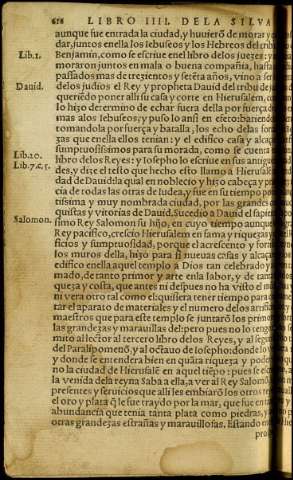 616 LIBRO IIII. DELA SILVA
aunque fue entrada la ciudad, y huuierõ de morar y
dar, juntos enella los Iebuseos y los Hebreos del tribu
Lib.1. Benjamin, como se escriue enel libro delos juezes: y
moraron juntos en mala o buena compañia, hasta
passados mas de trezientos y setẽta años, vino a ser
Dauid. delos judios el Rey y propheta Dauid del tribu de ju
queriẽdo poner alli su casa y corte en Hierusalem,
lo hizo determino de echar fuera della por fuerça
mas alos Iebuseos; y puso lo ansi en efeto: haziendo
tomandola por fuerça y batalla, los echo delas for
ças que enella ellos tenian: y el edifico casa y alcaç
sumptuosissimos para su morada, como se cuenta
Lib.20. libro delos Reyes: y Iosepho lo escriue en sus antigue
Lib.7.c.5. dades, y dize el testo que hecho esto llamo a Hierusalẽ
dad de Dauid: la qual en nobleza y hizo cabeça y p
cia de todas las otras de Iudea, y fue en su tiempo po
tissima y muy nombrada ciudad, por las grandes
quistas y vitorias de Dauid. Sucedio a Dauid el sapi
Salomon. simo Rey Salomon su hijo, en cuyo tiempo aunque
Rey pacifico, crecio Hierusalem en fama y riqueza, y
ficios y sumptuosidad, porque el acrescento y for
los muros della, hizo para si nueuas casas y alcaç
edifico enella aquel templo a Dios tan celebrado y
mado, de tanto primor y arte enla labor, y de tanta
queza y costa, que antes ni despues no ha visto el mũ
ni vera otro tal como el: quisiera tener tiempo para
tar el aparato de materiales y el numero delos
maestros que para este templo se juntarõ los primo
las grandezas y marauillas del: pero pues no lo tengo
mito al lector al tercero libro delos Reyes, y al segun
del Paralipomenõ, y al octauo de Iosepho: donde lo
y donde se entendera bien en quãta riqueza y pode
no la ciudad de Hierusalẽ en aquel tiẽpo: pues se es
la venida dela reyna Saba a ella, a ver al Rey Salomõ
presentes y seruicios que alli le embiarõ los otros
el oro y plata q̃ le fue traydo por la mar, que fue en
abundancia que tenia tanta plata como piedras, y
otras grandezas estrañas y marauillosas. Estando
pro